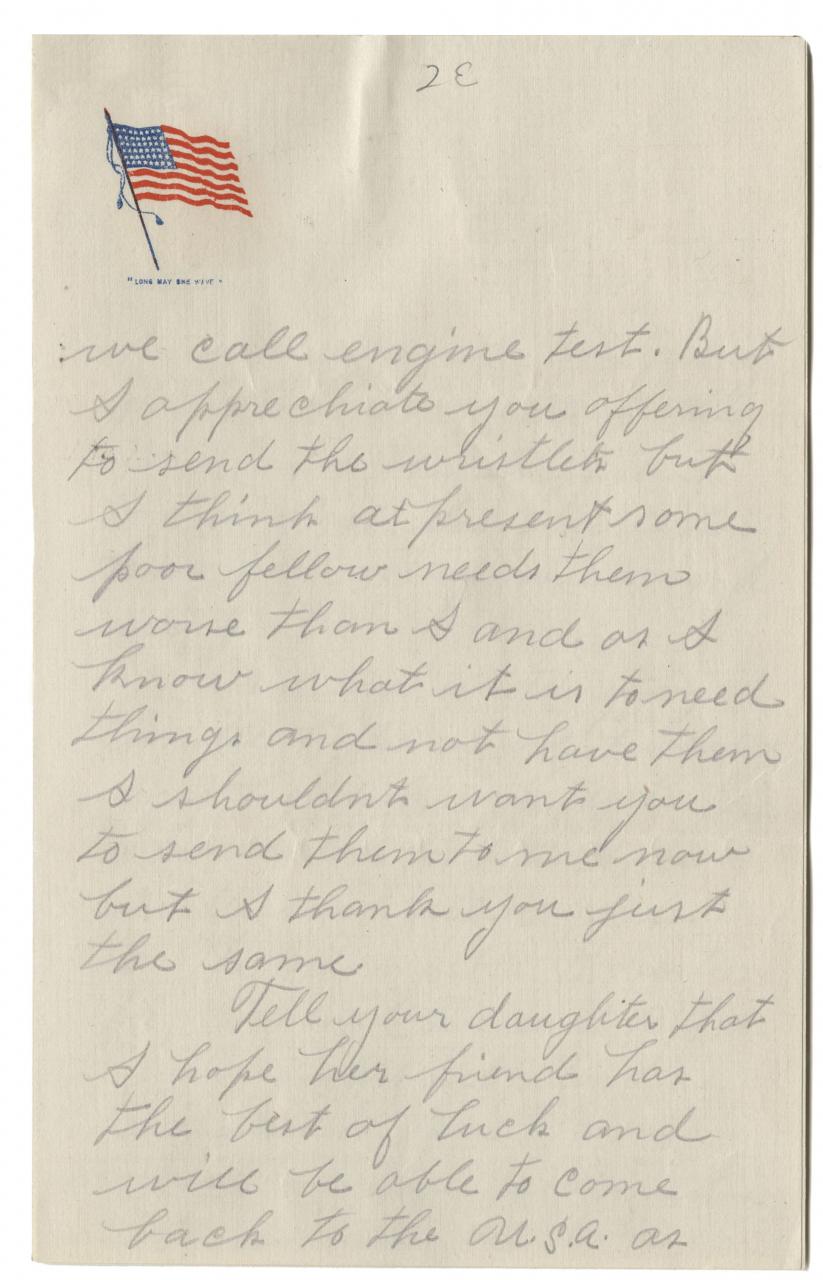 2E
"LONG MAY SHE WAVE"
we call engine test. But
I apprechiate you offering
to send the wristlets but
I think at present some
poor fellow needs them
worse than I and as I
know what it is to need
things and not have them
I shouldnt want you
to send them to me now
but I thank you just
the same
Tell your daughter that
I hope her friend has
the best of luck and
will be able to come
back to the U.S.A. as